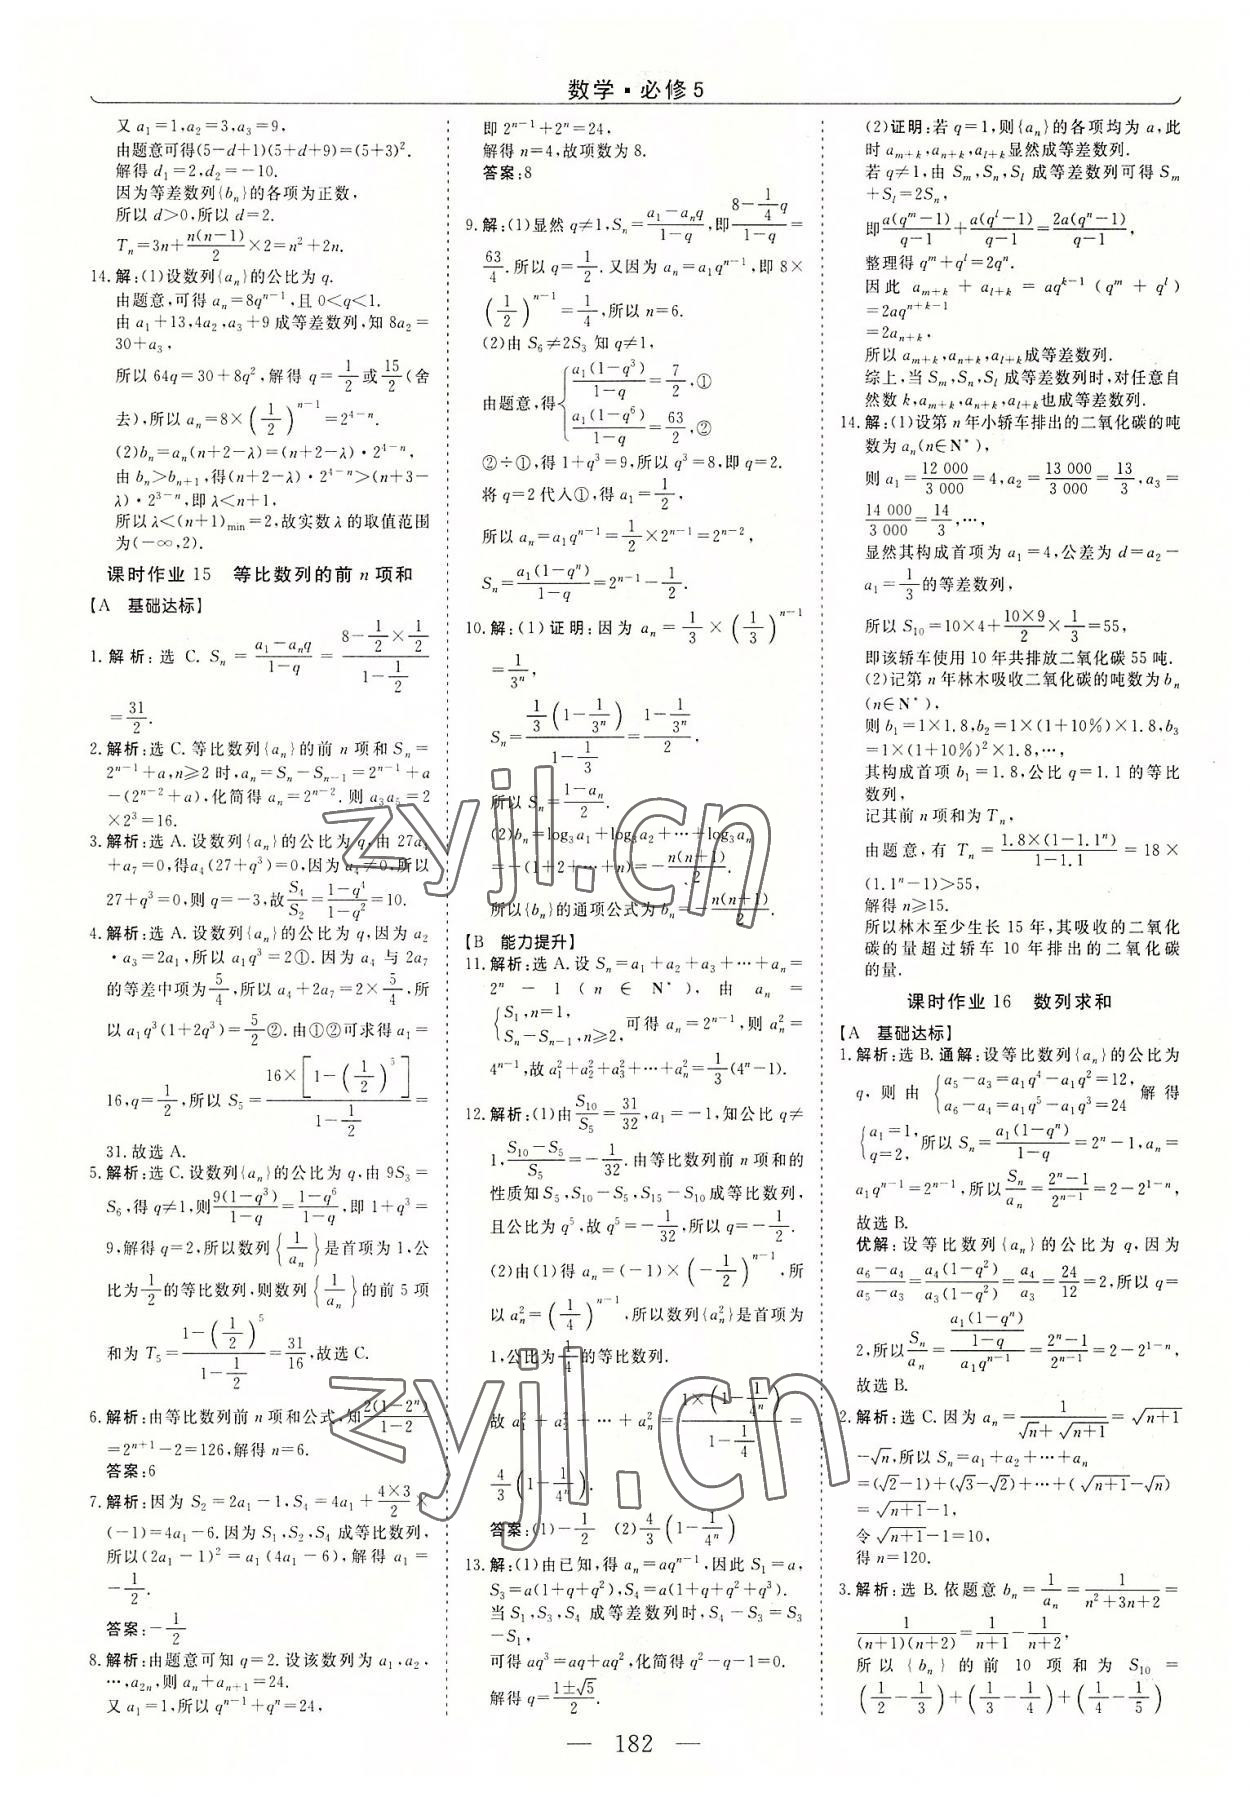 数学·必修5
又a₁=1,a₂=3,a₃=9,
由题意可得(5-d+1)(5+d+9)=(5+3)².
解得d₁=2,d₂=-10.
因为等差数列{bₙ}的各项为正数,
所以d>0,所以d=2.
Tₙ=3n+n(n-1)/2×2=n²+2n.
14.解:(1)设数列{aₙ}的公比为q.
由题意,可得aₙ=8qⁿ⁻¹,且0<q<1.
由a₁+13,4a₂,a₃+9成等差数列,知8a₂=
30+a₃,
所以64q=30+8q²,解得q=1/2或15/2(舍
去),所以aₙ=8×(1/2)ⁿ⁻¹=2⁴⁻ⁿ.
(2)bₙ=aₙ(n+2-λ)=(n+2-λ)·2⁴⁻ⁿ,
由bₙ>bₙ₊₁,得(n+2-λ)·2⁴⁻ⁿ>(n+3-
λ)·2³⁻ⁿ,即λ<n+1,
所以λ<(n+1)min=2,故实数λ的取值范围
为(-∞,2).
课时作业15 等比数列的前n项和
【A 基础达标】
1.解析:选C.Sₙ=(a₁-aₙq)/(1-q)=(8-1/2×1/2)/(1-1/2)
=31/2.
2.解析:选C.等比数列{aₙ}的前n项和Sₙ=
2ⁿ⁻¹+a,n≥2时,aₙ=Sₙ-Sₙ₋₁=2ⁿ⁻¹+a
-(2ⁿ⁻²+a),化简得aₙ=2ⁿ⁻².则a₃a₅=2
×2³=16.
3.解析:选A.设数列{aₙ}的公比为q,由27a₄
+a₇=0,得a₄(27+q³)=0,因为a₄≠0,所以
27+q³=0,则q=-3,故S₄/S₂=(1-q⁴)/(1-q²)=10.
4.解析:选A.设数列{aₙ}的公比为q,因为a₂
·a₃=2a₁,所以a₁q³=2①.因为a₄与2a₇
的等差中项为5/4,所以a₄+2a₇=2×5/4,所
以a₁q³(1+2q³)=5/2②.由①②可求得a₁=
16,q=1/2,所以S₅=16×[1-(1/2)⁵]/(1-1/2)=
31.故选A.
5.解析:选C.设数列{aₙ}的公比为q,由9S₃=
S₆,得q≠1,则9(1-q³)/(1-q)=(1-q⁶)/(1-q),即1+q³=
9,解得q=2,所以数列{1/aₙ}是首项为1,公
比为1/2的等比数列,则数列{1/aₙ}的前5项
和为T₅=(1-(1/2)⁵)/(1-1/2)=31/16,故选C.
6.解析:由等比数列前n项和公式,知2(1-2ⁿ)/(1-2)
=2ⁿ⁺¹-2=126,解得n=6.
答案:6
7.解析:因为S₂=2a₁-1,S₄=4a₁+4×3/2×
(-1)=4a₁-6.因为S₁,S₂,S₄成等比数列,
所以(2a₁-1)²=a₁(4a₁-6),解得a₁=
-1/2.
答案:-1/2
8.解析:由题意可知q=2.设该数列为a₁,a₂,
…,a₂ₙ,则aₙ+aₙ₊₁=24.
又a₁=1,所以qⁿ⁻¹+qⁿ=24,
即2ⁿ⁻¹+2ⁿ=24,
解得n=4,故项数为8.
答案:8
9.解:(1)显然q≠1,Sₙ=(a₁-aₙq)/(1-q),即(8-1/4q)/(1-q)=
63/4.所以q=1/2.又因为aₙ=a₁qⁿ⁻¹,即8×
(1/2)ⁿ⁻¹=1/4,所以n=6.
(2)由S₆≠2S₃知q≠1,
由题意,得{a₁(1-q³)/(1-q)=7/2,①
a₁(1-q⁶)/(1-q)=63/2,②
②÷①,得1+q³=9,所以q³=8,即q=2.
将q=2代入①,得a₁=1/2,
所以aₙ=a₁qⁿ⁻¹=1/2×2ⁿ⁻¹=2ⁿ⁻²,
Sₙ=a₁(1-qⁿ)/(1-q)=2ⁿ⁻¹-1/2.
10.解:(1)证明:因为aₙ=1/3×(1/3)ⁿ⁻¹
=1/3ⁿ,
Sₙ=1/3(1-1/3ⁿ)/(1-1/3)=(1-1/3ⁿ)/2,
所以Sₙ=(1-aₙ)/2.
(2)bₙ=log₃a₁+log₃a₂+…+log₃aₙ
=-(1+2+…+n)=-n(n+1)/2.
所以{bₙ}的通项公式为bₙ=-n(n+1)/2.
【B 能力提升】
11.解析:选A.设Sₙ=a₁+a₂+a₃+…+aₙ=
2ⁿ-1(n∈N*),由aₙ=
{S₁,n=1,
Sₙ-Sₙ₋₁,n≥2,可得aₙ=2ⁿ⁻¹,则aₙ²=
4ⁿ⁻¹,故a₁²+a₂²+a₃²+…+aₙ²=1/3(4ⁿ-1).
12.解析:(1)由S₁₀/S₅=31/32,a₁=-1,知公比q≠
1,(S₁₀-S₅)/S₅=-1/32.由等比数列前n项和的
性质知S₅,S₁₀-S₅,S₁₅-S₁₀成等比数列,
且公比为q⁵,故q⁵=-1/32,所以q=-1/2.
(2)由(1)得aₙ=(-1)×(-1/2)ⁿ⁻¹,所
以aₙ²=(1/4)ⁿ⁻¹,所以数列{aₙ²}是首项为
1,公比为1/4的等比数列.
故a₁²+a₂²+…+aₙ²=1×(1-1/4ⁿ)/(1-1/4)=
4/3(1-1/4ⁿ).
答案:(1)-1/2 (2)4/3(1-1/4ⁿ)
13.解:(1)由已知,得aₙ=aqⁿ⁻¹,因此S₁=a,
S₃=a(1+q+q²),S₄=a(1+q+q²+q³).
当S₁,S₃,S₄成等差数列时,S₄-S₃=S₃
-S₁,
可得aq³=aq+aq²,化简得q²-q-1=0.
解得q=(1±√5)/2.
(2)证明:若q=1,则{aₙ}的各项均为a,此
时aₘ₊ₖ,aₙ₊ₖ,aₗ₊ₖ显然成等差数列.
若q≠1,由Sₘ,Sₙ,Sₗ成等差数列可得Sₘ
+Sₗ=2Sₙ,
即a(qᵐ-1)/(q-1)+a(qˡ-1)/(q-1)=2a(qⁿ-1)/(q-1),
整理得qᵐ+qˡ=2qⁿ.
因此aₘ₊ₖ+aₗ₊ₖ=aqᵏ⁻¹(qᵐ+qˡ)
=2aqⁿ⁺ᵏ⁻¹
=2aₙ₊ₖ,
所以aₘ₊ₖ,aₙ₊ₖ,aₗ₊ₖ成等差数列.
综上,当Sₘ,Sₙ,Sₗ成等差数列时,对任意自
然数k,aₘ₊ₖ,aₙ₊ₖ,aₗ₊ₖ也成等差数列.
14.解:(1)设第n年小轿车排出的二氧化碳的吨
数为aₙ(n∈N*),
则a₁=12 000/3 000=4,a₂=13 000/3 000=13/3,a₃=
14 000/3 000=14/3,…,
显然其构成首项为a₁=4,公差为d=a₂-
a₁=1/3的等差数列,
所以S₁₀=10×4+10×9/2×1/3=55,
即该轿车使用10年共排放二氧化碳55吨.
(2)记第n年林木吸收二氧化碳的吨数为bₙ
(n∈N*),
则b₁=1×1.8,b₂=1×(1+10%)×1.8,b₃
=1×(1+10%)²×1.8,…,
其构成首项b₁=1.8,公比q=1.1的等比
数列,
记其前n项和为Tₙ,
由题意,有Tₙ=1.8×(1-1.1ⁿ)/(1-1.1)=18×
(1.1ⁿ-1)≥55,
解得n≥15.
所以林木至少生长15年,其吸收的二氧化
碳的量超过轿车10年排出的二氧化碳
的量.
课时作业16 数列求和
【A 基础达标】
1.解析:选B.通解:设等比数列{aₙ}的公比为
q,则由{a₅-a₃=a₁q⁴-a₁q²=12,
a₆-a₄=a₁q⁵-a₁q³=24 解得
{a₁=1,
q=2,所以Sₙ=a₁(1-qⁿ)/(1-q)=2ⁿ-1,aₙ=
a₁qⁿ⁻¹=2ⁿ⁻¹,所以Sₙ/aₙ=(2ⁿ-1)/2ⁿ⁻¹=2-2¹⁻ⁿ,
故选B.
优解:设等比数列{aₙ}的公比为q,因为
(a₆-a₄)/(a₅-a₃)=a₄(1-q²)/a₃(1-q²)=a₄/a₃=24/12=2,所以q=
2,所以Sₙ/aₙ=(a₁(1-qⁿ)/(1-q))/(a₁qⁿ⁻¹)=(2ⁿ-1)/2ⁿ⁻¹=2-2¹⁻ⁿ,
故选B.
2.解析:选C.因为aₙ=1/(√n+√(n+1))=√(n+1)
-√n,所以Sₙ=a₁+a₂+…+aₙ
=(√2-1)+(√3-√2)+…+(√(n+1)-√n)
=√(n+1)-1,
令√(n+1)-1=10,
得n=120.
3.解析:选B.依题意bₙ=1/aₙ=1/(n²+3n+2)=
1/((n+1)(n+2))=1/(n+1)-1/(n+2),
所以{bₙ}的前10项和为S₁₀=
(1/2-1/3)+(1/3-1/4)+(1/4-1/5)
— 182 —
zyjl.cn
zyjl.cn